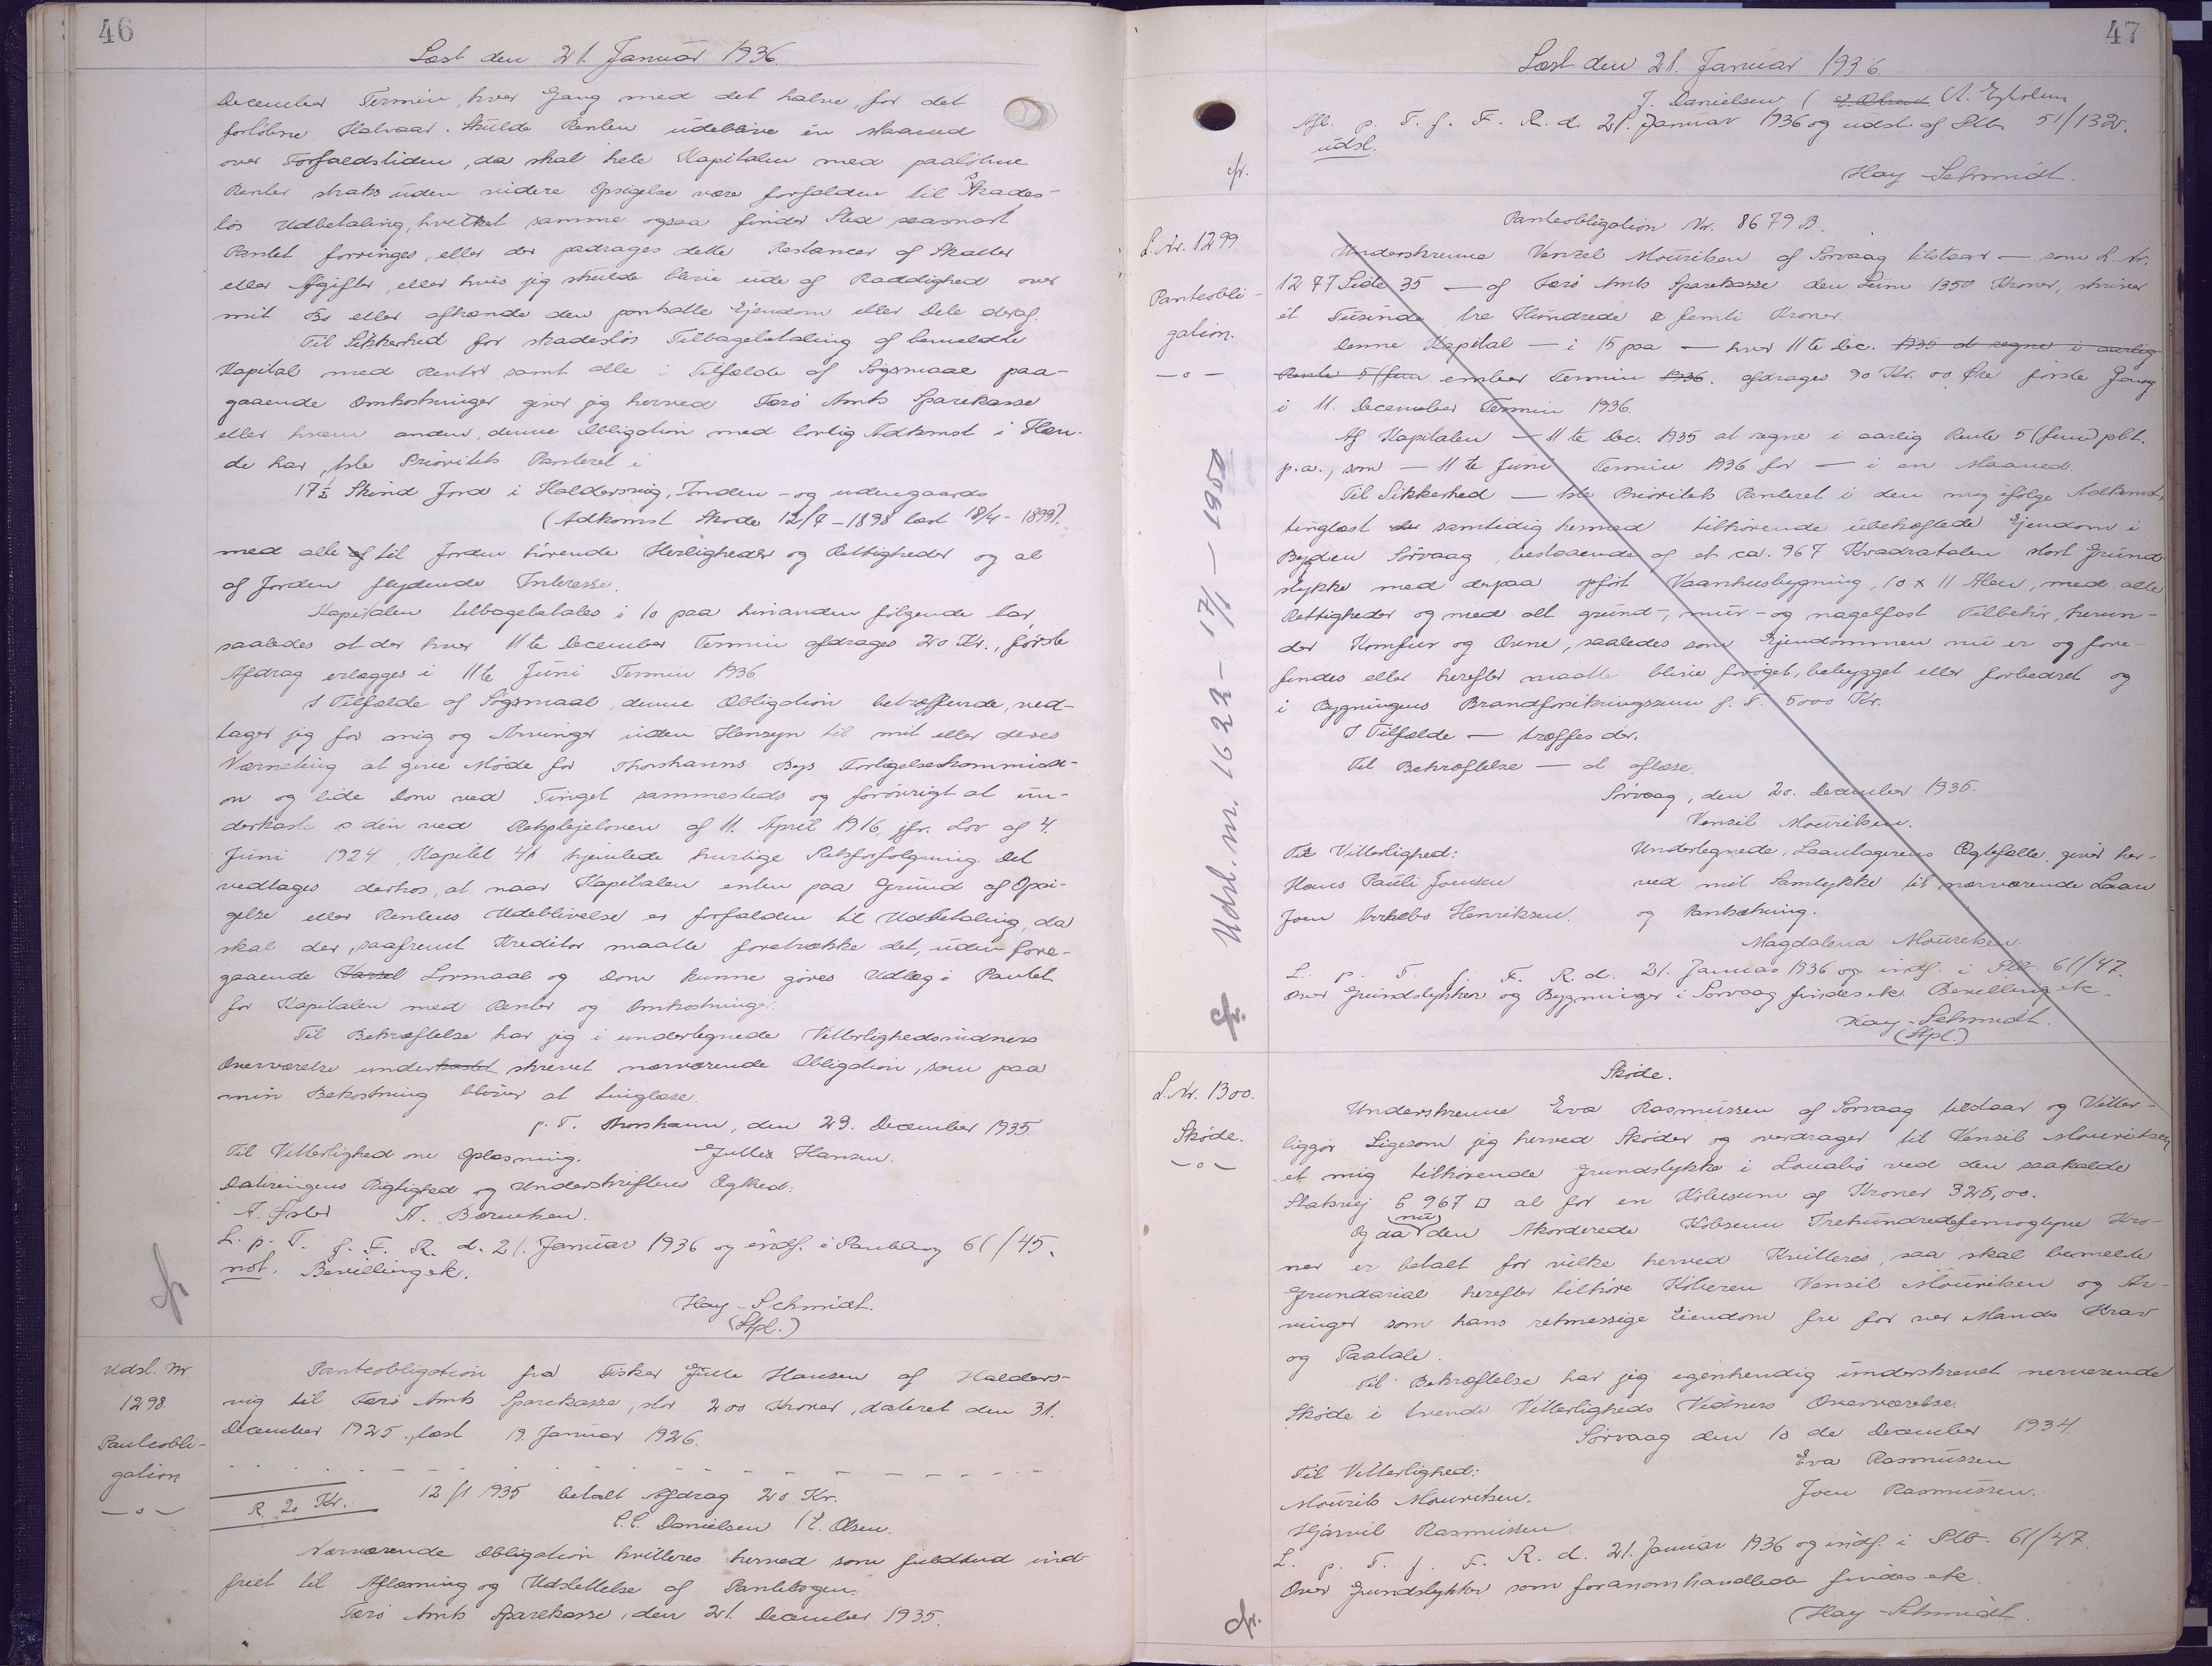 46
Læst den 21. Januar 1936.
December Termin, hver Gang med det halve, for det
forløbne Halvaar. Skulde Renten udeblive én Maaned
over Forfaldstiden, da skal hele Kapitalen med paaløbne
Renter straks uden videre Opsigelse være forfalden til Skades-
løs Udbetaling, hvilket samme ogsaa finder Sted saasnart
Pantet forringes, eller der paadrages dette Restancer af Skatter
eller Afgifter, eller hvis jeg skulde blive ude af Raadighed over
mit Bo eller afhænde den pantsatte Ejendom eller Dele deraf.
Til Sikkerhed for skadesløs Tilbagebetaling af bemeldte
Kapital med Renter samt alle i Tilfælde af Søgsmaal paa-
gaaende Omkostninger giver jeg herved Færø Amts Sparekasse
eller hvem anden, denne Obligation med lovlig Adkomst i Hæn-
de har, 1ste Prioritets Panteret i
17½ Skind Jord i Haldersvig, Inden- og udengaards
(Adkomst Skøde 12/7-1898 læst 18/4-1899).
med alle af til Jorden hørende Herligheder og Rettigheder og al
af Jorden flydende Interesse.
Kapitalen tilbagebetales i 10 paa hinanden følgende Aar,
saaledes at der hver 11te December Termin afdrages 20 Kr., første
Afdrag erlægges i 11te Juni Termin 1936
I Tilfælde af Søgsmaal, denne Obligation betræffende, ved-
tager jeg for mig og Arvinger uden Hensyn til mit eller deres
Værneting at give Møde for Thorshavns Bys Forligelseskommissi-
on og lide Dom ved Tinget sammesteds og forøvrigt at un-
derkaste os den ved Retsplejeloven af 11. April 1916, jfr. Lov af 4.
Juni 1924, Kapitel 41 hjemlede hurtige Retsforfølgning. Det
vedtages derhos, at naar Kapitalen enten paa Grund af Opsi-
gelse eller Rentens Udeblivelse er forfalden til Udbetaling, da
skal der, saafremt Kreditor maatte foretrække det, uden fore-
gaaende Lovmaal og Dom kunne gøres Udlæg i Pantet
for Kapitalen med Renter og Omkostninger.
Til Bekræftelse har jeg i undertegnede Vitterlighedsvidners
Overværelse underkastet skrevet nærværende Obligation, som paa
min Bekostning bliver at tinglæse.
p. T. Thorshavn, den 23. December 1935.
Til Vitterlighed om Oplæsning, Julle Hansen.
Dateringens Rigtighed og Underskriftens Ægthed:
L. p. T. f. F. R. d. 21. Januar 1936 og indf. i Pantebog 61/45.
not. Bevilling ek.
Hay-Schmidt.
(Stpl.)
cfr
Udsl. Nr
1298.
Panteobli-
gation
—o—
Panteobligation fra Fisker Julle Hansen af Halders-
vig til Færø Amts Sparekasse, stor 200 Kroner, dateret den 31.
December 1925., læst 19. Januar 1926.
R. 20 Kr. 12/1 1935 betalt Afdrag 20 Kr.
C.C. Danielsen / E. Olsen.
Nærværende Obligation kvitteres herved som fuldtud ind-
friet til Aflæsning og Udslettelse af Pantebogen.
Færø Amts Sparekasse, den 21. December 1935.
47
Læst den 21. Januar 1936
J. Danielsen / A. Eyholm
Afl. p. T. f. F. R. d. 21. Januar 1936 og udsl. af Ptb 51/132.
udsl.
cfr.
Hay-Schmidt.
L. Nr. 1299.
Panteobli-
gation.
—o—
Panteobligation Nr. 8679 B.
Underskrevne Vensel Mouritsen af Sørvaag tilstaar — som L. Nr.
1277 Side 35 — af Færø Amts Sparekasse den Sum 1350 Kroner, skriver
ét Tusinde tre Hundrede & femti Kroner.
Denne Kapital — i 15 paa — hver 11te Dec. 1935 at regne i aarlig
Rente 5 (fem ember Termin 1936. afdrages 90 Kr. 00 Øre første Gang
i 11. December Termin 1936.
Af Kapitalen — 11te Dec. 1935 at regne i aarlig Rente 5 (fem) pCt.
p.a., som — 11te Juni Termin 1936 for — i en Maaned.
Til Sikkerhed — 1ste Prioritets Panteret i den mig ifølge Adkomst,
tinglæst samtidig hermed tilhørende ubehæftede Ejendom i
Bygden Sørvaag, bestaaende af et ca. 967 Kvadratalen stort Grund-
stykke med derpaa opført Vaanhusbygning, 10 x 11 Alen, med alle
Rettigheder og med alt grund-, mur- og nagelfast Tilbehør, herun-
der Komfur og Ovne, saaledes som Ejendommen nu er og fore-
findes eller herefter maatte blive forøget, bebygget eller forbedret og
i Bygningens Brandforsikringssum p. T. 5000 Kr.
I Tilfælde — træffes der.
Til Bekræftelse — at aflæse.
Sørvaag, den 20. December 1935.
Vensil Mouritsen.
Til Vitterlighed: Undertegnede, Laantagerens Ægtefælle, giver her-
Hans Pauli Joensen ved mit Samtykke til nærværende Laan
Joen Henriksen. og Pantsætning.
Magdalena Mouritsen.
L. p. T. f. F. R. d. 21. Januar 1936 og indf. i Ptb 61/47.
Over Grundstykker og Bygninger i Sørvaag findes ek. Bevilling ek.
Hay-Schmidt.
(Stpl.)
Udsl. nr. 1622 - 17/1 - 1951
cfr.
L. Nr. 1300.
Skøde.
—o—
Skøde.
Underskrevne Eva Rasmussen af Sørvaag tilstaar og Vitter-
liggør Ligesom jeg herved Skøder og overdrager til Vensil Mouritsen
et mig tilhørende Grundstykke i ved den saakaldte
Statsvej 967 □ al for en Købesum af Kroner 325,00.
Og da nu den Akorderede Købsum Trehundredefemogtyve Kro-
ner er betalt for vilke herved Kvitteres, saa skal bemeldte
Grundarial herefter tilhøre Køberen Vensil Mouritsen og Ar-
vinger som hans retmessige Eiendom fri for ver Mands Krav
og Paatale.
Til Bekræftelse har jeg egenhendig underskrevet nerværende
Skøde i tvende Vitterligheds Vidners Overværelse.
Sørvaag den 10 de December 1934.
Til Vitterlighed: Eva Rasmussen
Mourits Mouritsen. Joen Rasmussen.
Hjørvil Rasmussen
L. p. T. f. F. R. d. 21. Januar 1936 og indf. i Ptb. 61/47.
Over Grundstykker som foranomhandlede findes ek.
Hay-Schmidt.
cfr.